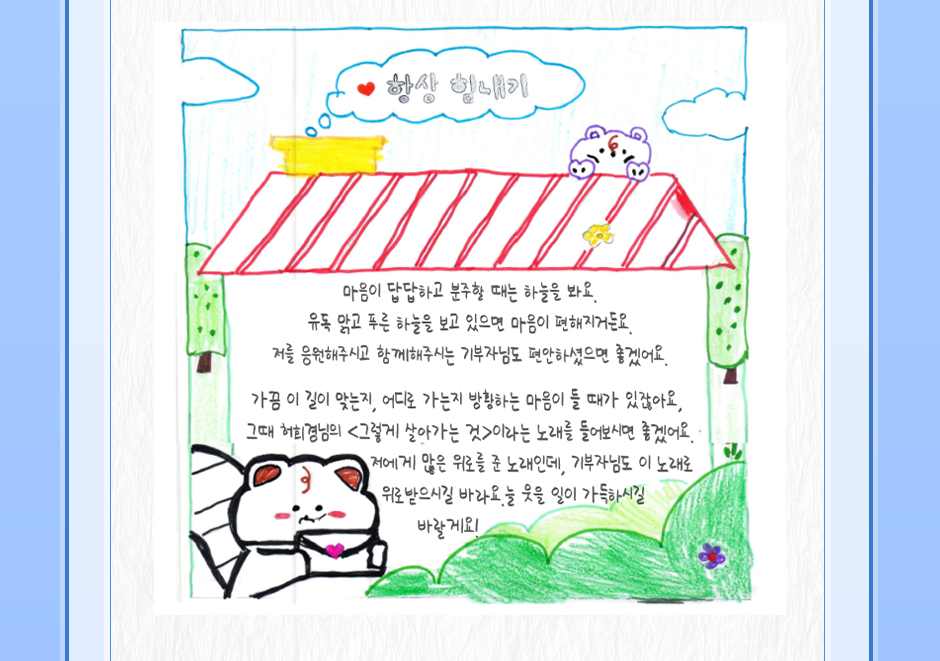 항상 힘내기
마음이 답답하고 분주할 때는 하늘을 봐요.
유독 맑고 푸른 하늘을 보고 있으면 마음이 편해지거든요.
저를 응원해주시고 함께해주시는 기부자님도 편안하셨으면 좋겠어요.
가끔 이 길이 맞는지, 어디로 가는지 방황하는 마음이 들 때가 있잖아요,
그때 허회경님의 <그렇게 살아가는 것>이라는 노래를 들어보시면 좋겠어요.
저에게 많은 위로를 준 노래인데, 기부자님도 이 노래로
위로받으시길 바라요.늘 웃을 일이 가득하시길
바랄게요!